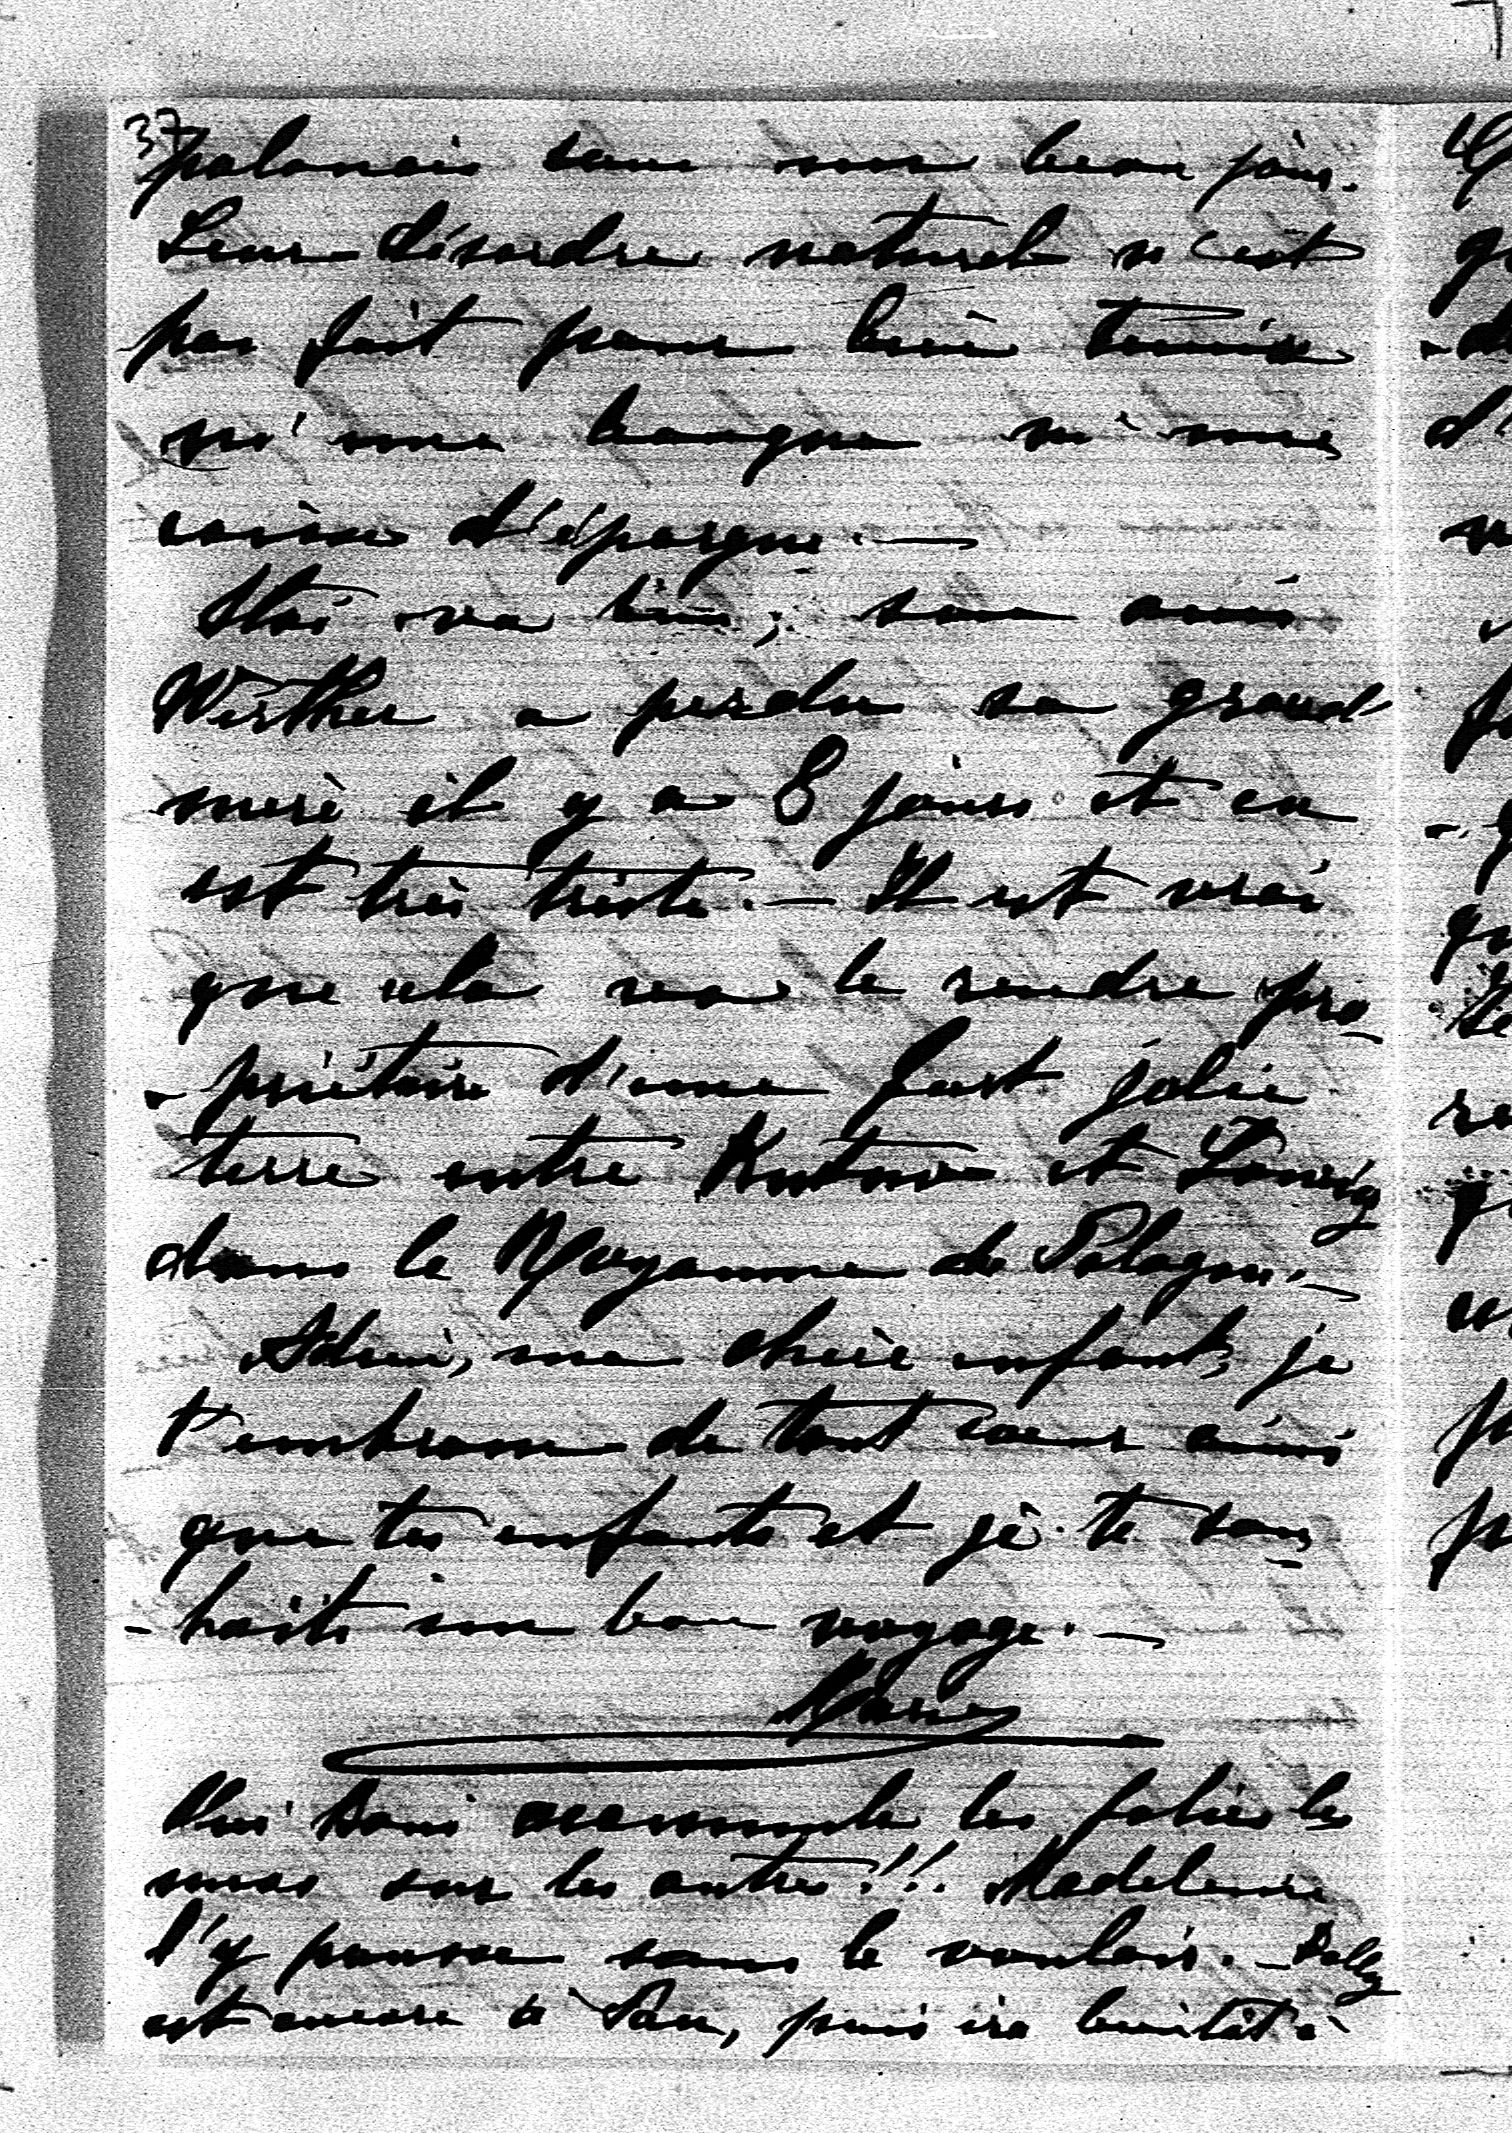 37
polonais dans son beau jour.
Leur désordre naturel n'est
pas fait pour bien tenir
ni une banque ni une
caisse d'épargne. —
Stas va bien; son ami
Werther a perdu sa grand-
mère il y a 8 jours et en
est très triste. — Il est vrai
que cela va le rendre pro-
- priétaire d'une fort jolie
terre entre Kutno et
dans le Royaume de Pologne. —
Adieu, ma chère enfant, je
t'embrasse de tout cœur ainsi
que tes enfants et je te sou-
- haite un bon voyage. —
Marie
accumule les folies les
unes sur les autres!!! Madeleine
l'y pousse sans le vouloir. — Dolly
est encore à Pau, puis ira bientôt à